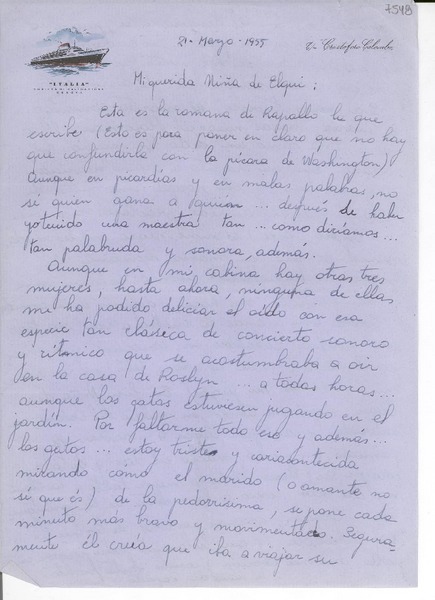 7548
21 - Marzo - 1955
"Cristoforo Colombo"
"ITALIA"
GENOVA
Mi querida Niña de Elqui :
Esta es la romana de Rapallo la que
escribe (Esto és para poner en claro que no hay
que confundirla con la pícara de Washington)
Aunque en picardías y en malas palabras, no
sé quien gana a quien ... después de haber
yo tenido una maestra tan ... como diríamos ...
tan palabruda y sonora, además.
Aunque en mi cabina hay otras tres
mujeres, hasta ahora, ninguna de ellas
me ha podido deliciar el oído con esa
especie tan clásica de concierto sonoro
y rítmico que se acostumbraba a oir
en la casa de Roslyn ... a todas horas ...
aunque los gatos estuviesen jugando en el
jardín. Por faltarme todo eso y además ...
los gatos ... estoy triste y cariacontecida
mirando cómo el marido (o amante no
sé que és) de la pedorrísima, se pone cada
minuto más bravo y movimentado. Segura-
mente él creía que iba a viajar su